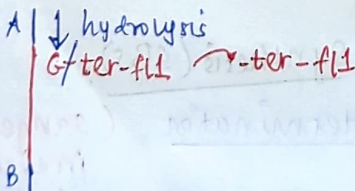 A hydrolysis
G/ter-fl1 -ter-fl1
B